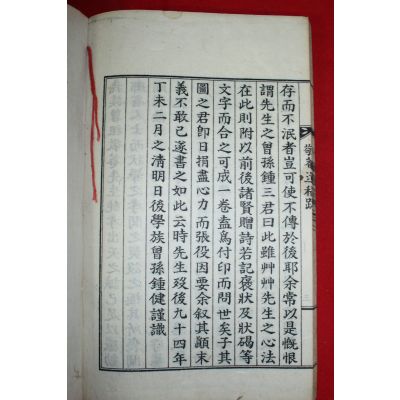 存而不泯者豈可使不傳於後耶余常以是慨恨
謂先生之曾孫鍾三君曰此雖艸艸先生之心法
在此則附以前後諸賢贈詩若記褒狀及狀碣等
文字而合之可成一卷盍爲付印而問世矣子其
圖之君卽日捐盡心力而張役因要余叙其顚末
義不敢已遂書之如此云時先生歿後九十四年
丁未二月之淸明日後學族曾孫鍾健謹識